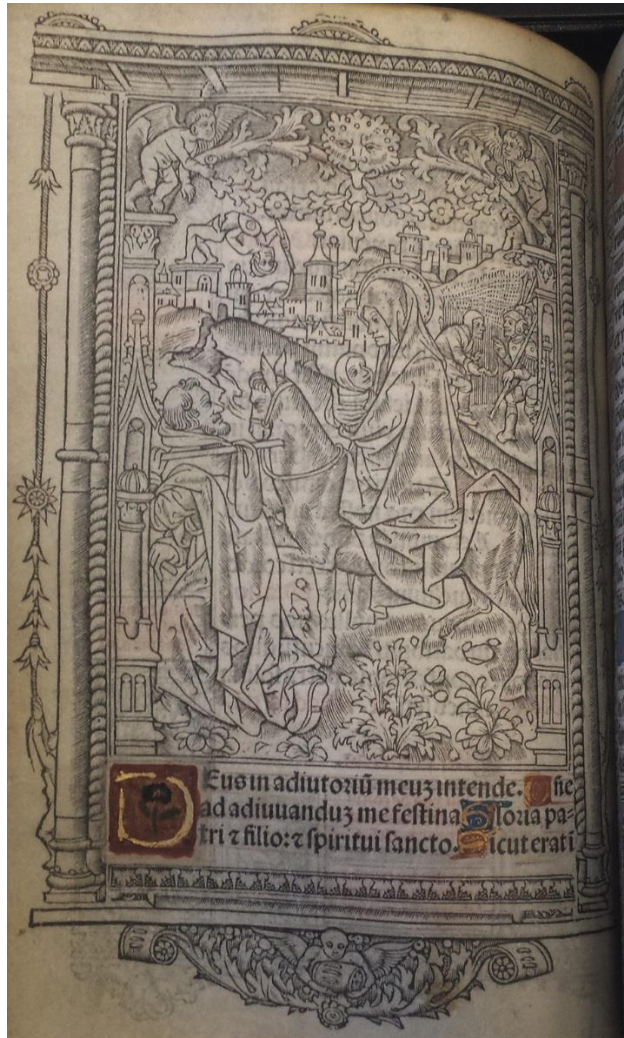 Deus in adiutoriū meuꝫ intende. Dñe
ad adiuuanduꝫ me festina Gloria pa⸗
tri ⁊ filio: ⁊ spiritui sancto. Sicut erat i